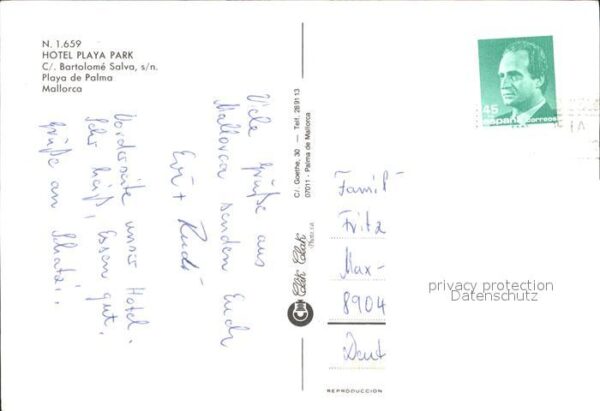 N. 1.659
HOTEL PLAYA PARK
C/. Bartolomé Salva, s/n.
Playa de Palma
Mallorca
Viele Grüße aus
Mallorca senden Euch
Evi + Rudi
Vorderseite unser Hotel.
Sehr heiß, Essen gut.
Grüße an Schatzi.
C/. Goethe, 30 — Telf. 289113
07011 - Palma de Mallorca
Clik Clak
REPRODUCCION
45
españa correos
Famil
Fritz
Max-
8904
Deut
privacy protection
Datenschutz